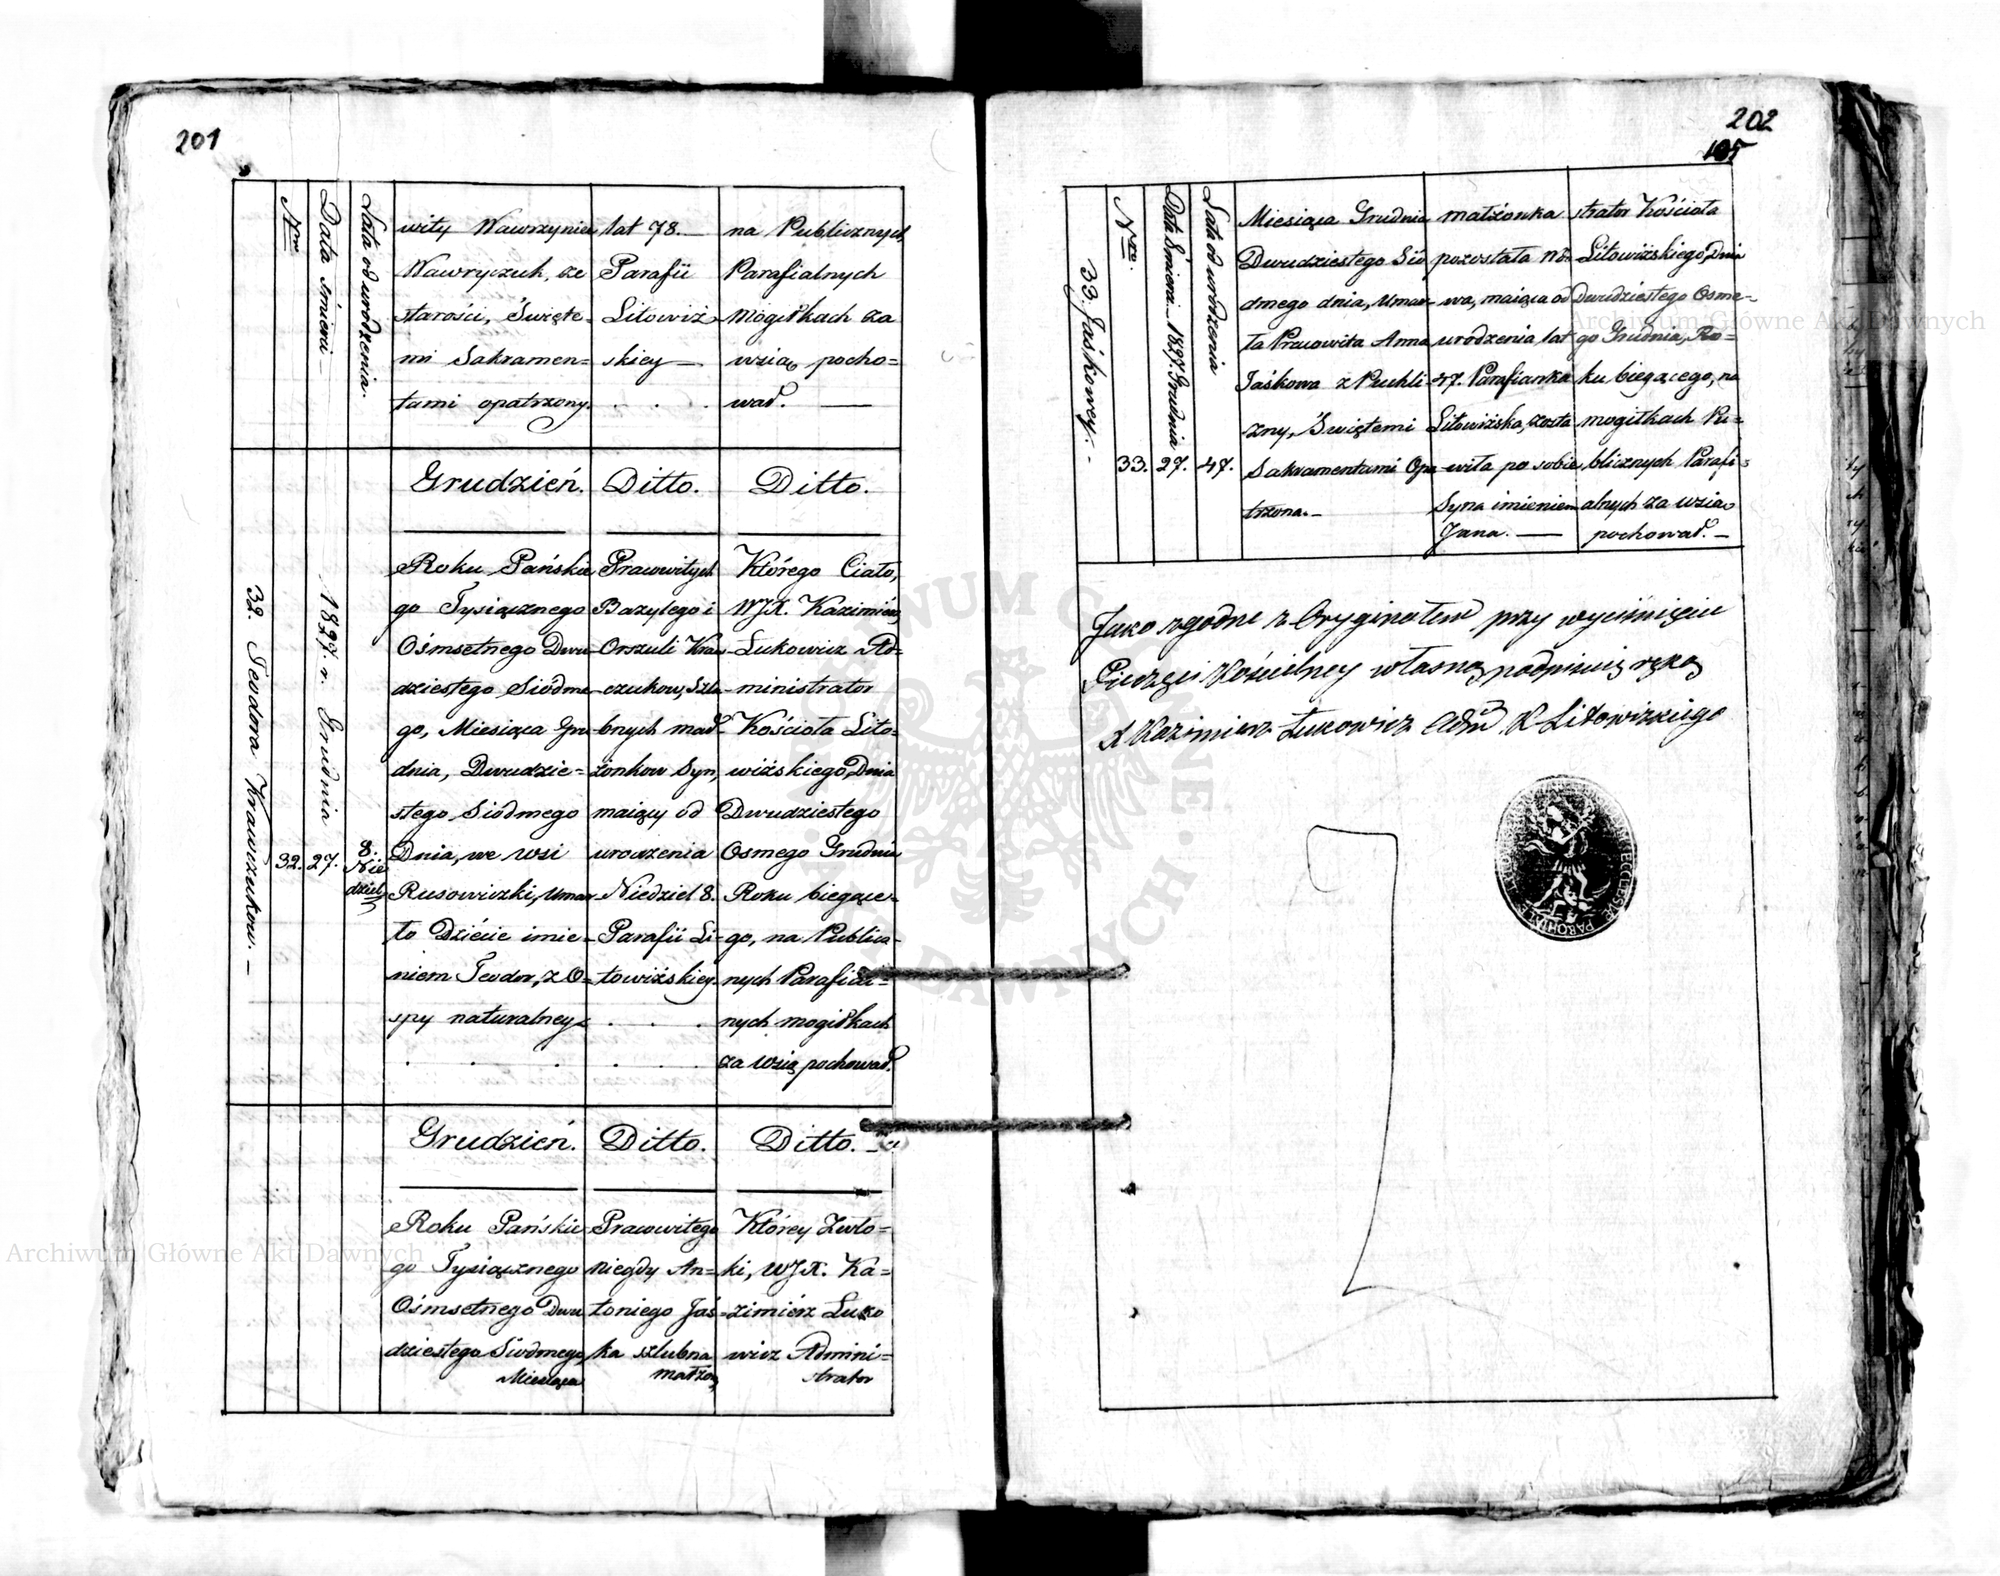 201
Nro
Data śmierci
Lata od urodzenia.
wity Wawrzyniec
Wawryczuk, ze
starości, Święte=
mi Sakramen=
tami opatrzony.
lat 78.—
Parafii
Litowiż
skiey—
na Publicznych
Parafialnych
mogiłkach za
wsią pocho=
wał. —
Grudzień. Ditto. Ditto.
32. Teodora Krawczukow.—
32.
1827. r. Grudnia
27.
8.
Nie
dziel
Roku Pańskie
go Tysiącznego
Ośmsetnego Dwu
dziestego Siódme
go, Miesiąca Gru
dnia, Dwudzie=
stego Siódmego
Dnia, we wsi
Rusowiczki, umar
ło Dziécie imie=
niem Teodor, z O=
spy naturalney
Prawowitych
Bazylego i
Orszuli Kraw
czukow, Szlu
bnych mał
żonkow Syn,
maiący od
urodzenia
Niedziel 8.
Parafii Li=
towiżskiey.
Którego Ciało,
WJX. Kazimierz
Lukowicz Ad=
ministrator
Kościoła Lito=
wiżskiego, Dnia
Dwudziestego
Osmego Grudnia
Roku biegące=
go, na Publicz=
nych Parafial=
nych mogiłkach
za wsią pochował.
Grudzień. Ditto. Ditto.—
Roku Pańskie
go Tysiącznego
Ośmsetnego Dwu
dziestego Siódmego
Miesiąca
Prawowitego
niegdy An=
toniego Jaś=
ka szlubna
małżon
Którey Zwło=
ki, WJX. Ka=
zimiérz Luko
wicz Admini=
strator
202
105
Nro.
Data Śmierci 1827. Grudnia
Lata od urodzenia
33. Jaśkowey.-
33.
27.
47.
Miesiąca Grudnia
Dwudziestego Sió
dmego dnia, umar=
ła Prawowita Anna
Jaśkowa z Puchli=
zny, Świętemi
Sakramentami Opa
trzona.—
małżonka
pozostała wdo
wa, maiąca od
urodzenia lat
47. Parafianka
Litowiżska, zosta
wiła po sobie
Syna imieniem
Jana. —
strator Kościoła
Litowiżskiego, Dnia
Dwudziestego Osme=
go Grudnia, Ro=
ku biegącego, na
mogiłkach Pu=
blicznych Parafi=
alnych za wsią
pochował. —
Jako zgodne z Oryginałem przy wyciśnięciu
Pieczęci Kościelney własną podpisuię ręką
X Kazimierz Łukowicz Adm. K Litowizkiego
Archiwum Główne Akt Dawnych
Archiwum Główne Akt Dawnych
ARCHIWUM GŁÓWNE AKT DAWNYCH